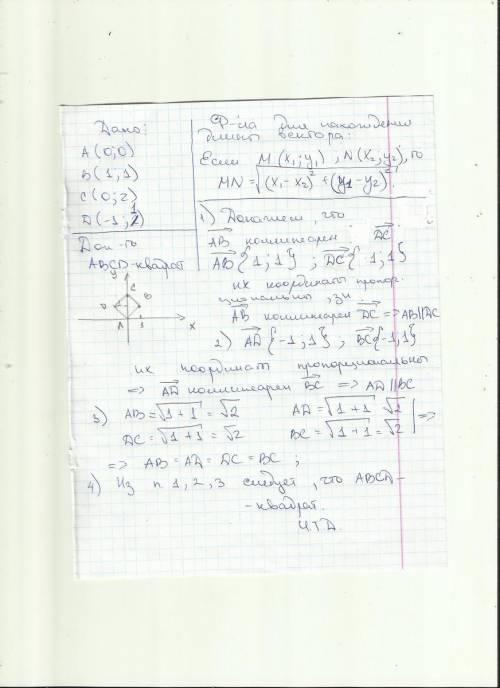 Дано:
A (0;0)
B (1;1)
C (0;2)
D (-1;1)
Док-ть
ABCD-квадрат
y
C
D
B
A
1
x
Ф-ла для нахождения
длины вектора:
Если M (x₁; y₁), N (x₂; y₂), то
MN = √(x₁-x₂)² + (y₁-y₂)²
1) Докажем, что
AB коллинеарен DC.
AB {1; 1} ; DC {1; 1}
их координаты пропор-
циональны, зн.
AB коллинеарен DC => AB||DC
2) AD {-1; 1} ; BC {-1; 1}
их координаты пропорциональны
=> AD коллинеарен BC => AD || BC
3) AB = √1+1 = √2 AD = √1+1 √2
DC = √1+1 = √2 BC = √1+1 = √2 | =>
=> AB = AD = DC = BC ;
4) Из п. 1, 2, 3 следует, что ABCD-
- квадрат.
Ч.Т.Д.